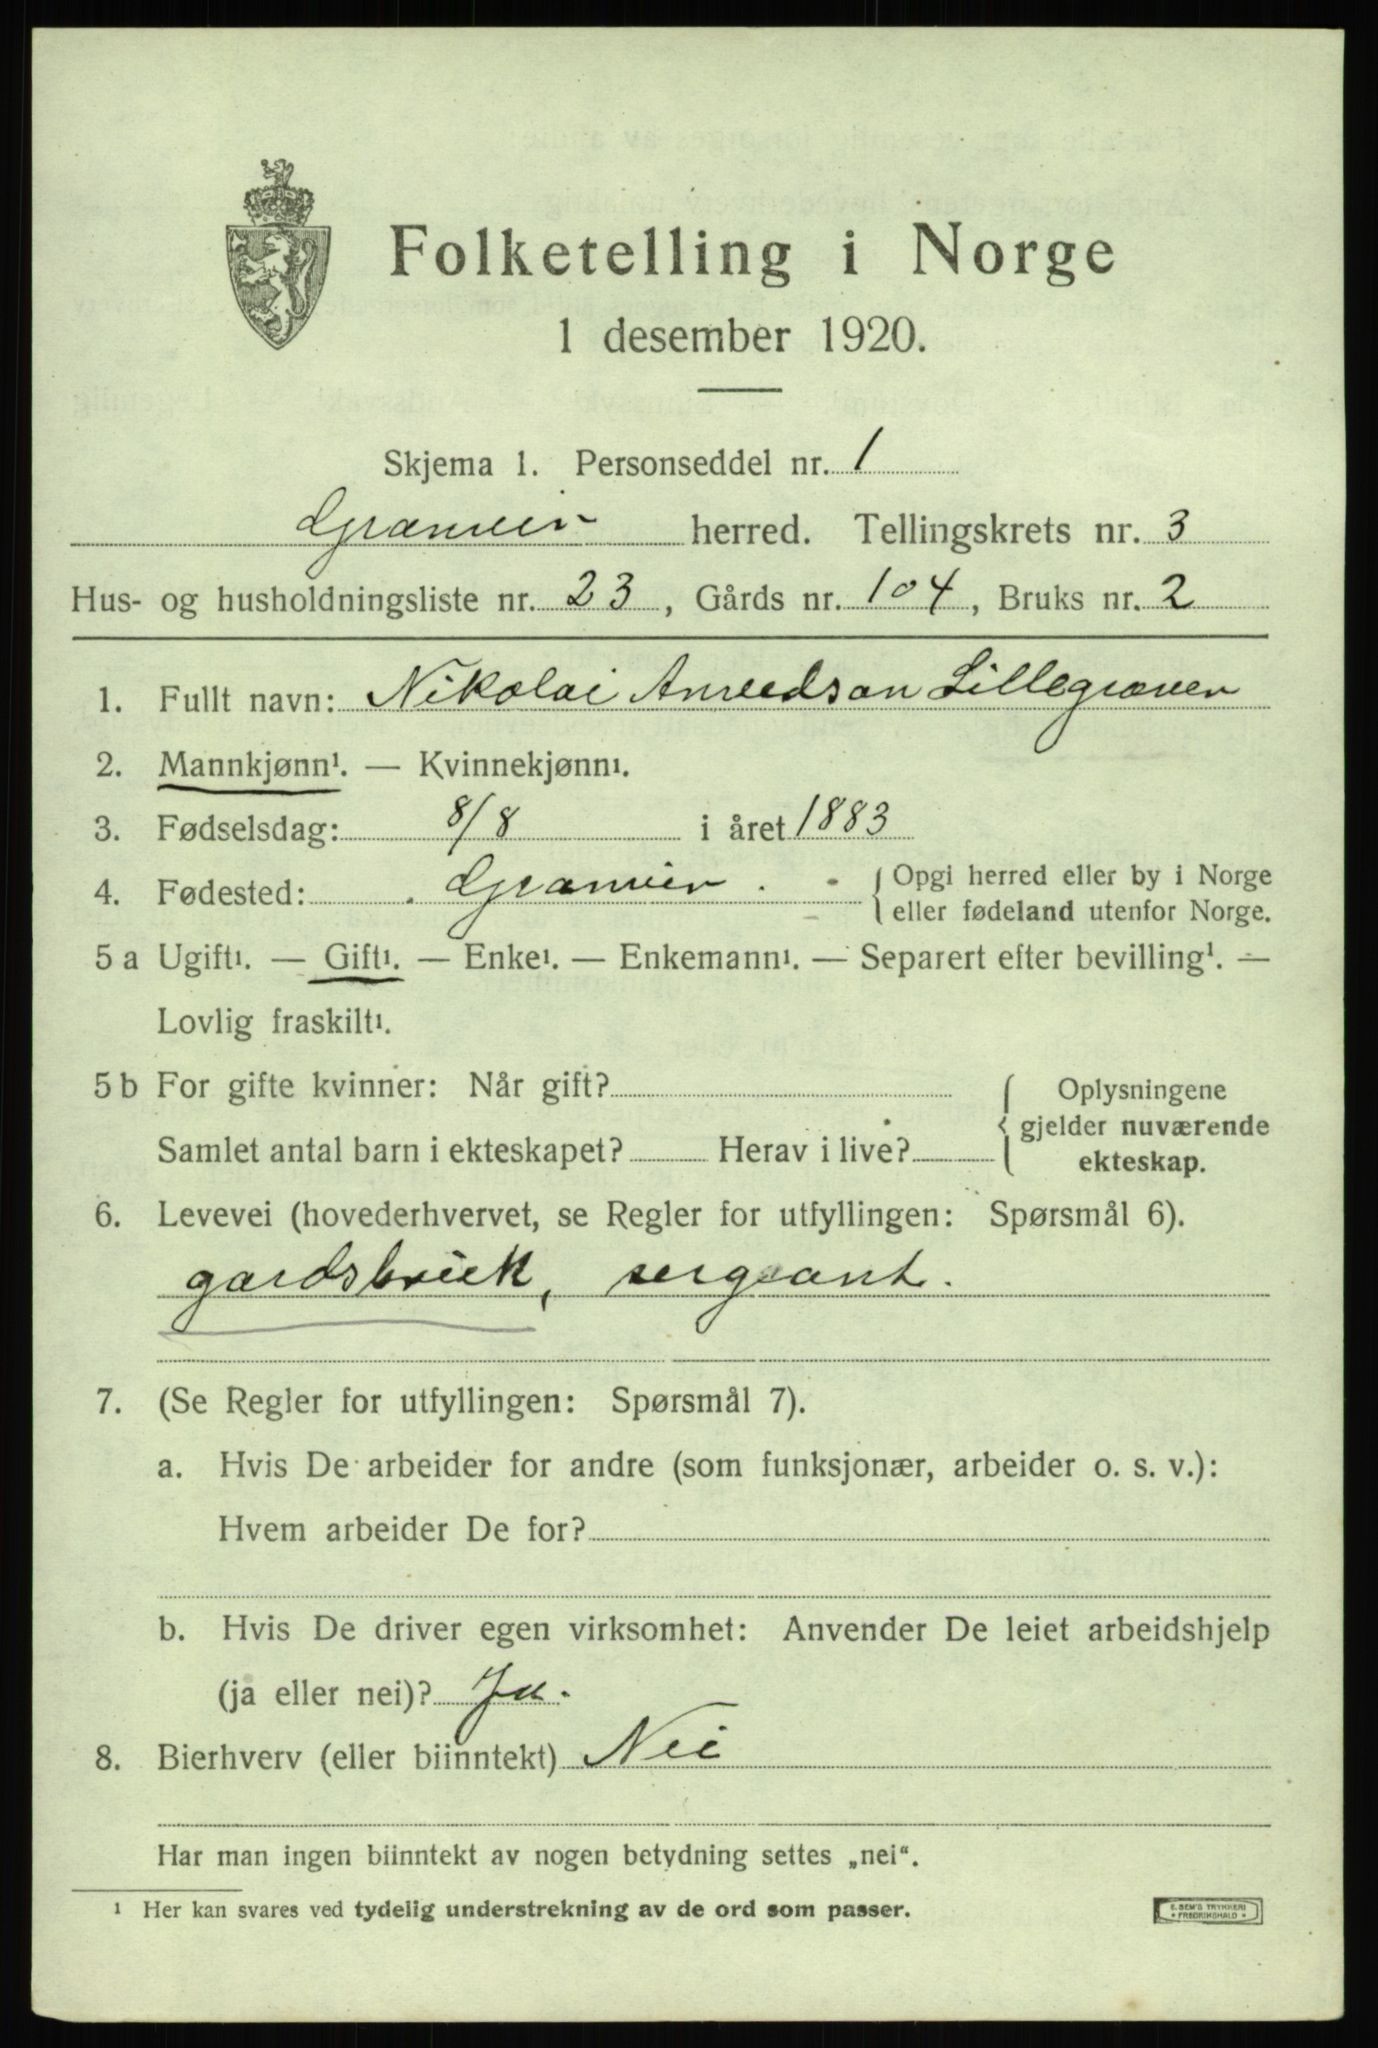 Folketelling i Norge
1 desember 1920.
Skjema 1. Personseddel nr. 1
Granvin herred. Tellingskrets nr. 3
Hus- og husholdningsliste nr. 23, Gårds nr. 104, Bruks nr. 2
1. Fullt navn: Nikolai Amundson Lillegraven
2. Mannkjønn¹. — Kvinnekjønn¹.
3. Fødselsdag: 8/8 i året 1883
4. Fødested: Granvin. { Opgi herred eller by i Norge
eller fødeland utenfor Norge.
5 a Ugift¹. — Gift¹. — Enke¹. — Enkemann¹. — Separert efter bevilling¹. —
Lovlig fraskilt¹.
5 b For gifte kvinner: Når gift?
Samlet antal barn i ekteskapet? Herav i live?
{ Oplysningene
gjelder nuværende
ekteskap.
6. Levevei (hovederhvervet, se Regler for utfyllingen: Spørsmål 6).
gardsbruk, sergeant.
7. (Se Regler for utfyllingen: Spørsmål 7).
a. Hvis De arbeider for andre (som funksjonær, arbeider o. s. v.):
Hvem arbeider De for?
b. Hvis De driver egen virksomhet: Anvender De leiet arbeidshjelp
(ja eller nei)? Ja.
8. Bierhverv (eller biinntekt) Nei
Har man ingen biinntekt av nogen betydning settes „nei".
¹ Her kan svares ved tydelig understrekning av de ord som passer.
E. SEM'S TRYKKERI
* FREDRIKSHALD *